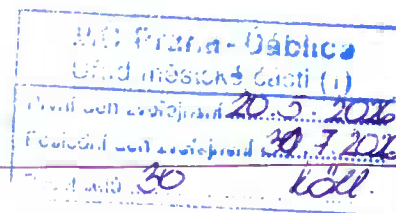 MČ Praha - Ďáblice
Úřad městské části (1)
První den zveřejnění 20.5.2026
Poslední den zveřejnění 30.7.2026
30